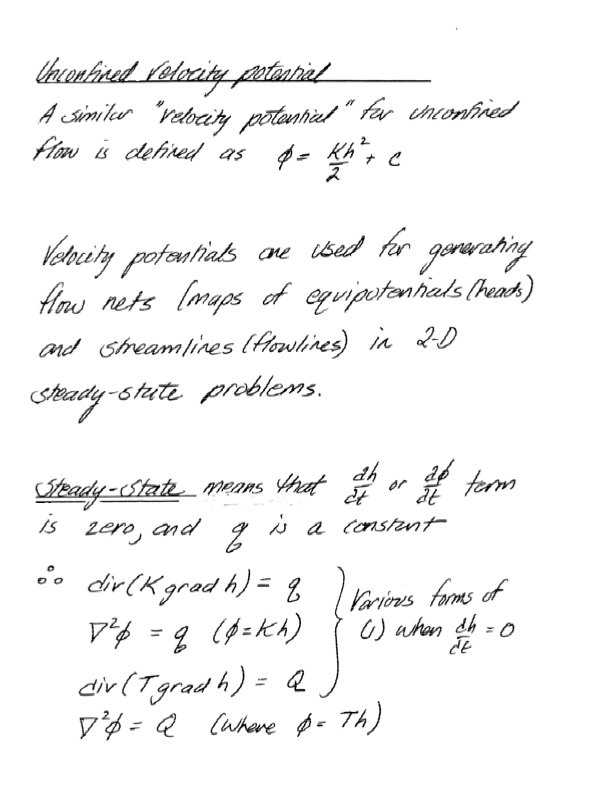 Unconfined Velocity potential
A similar "velocity potential" for unconfined
flow is defined as ϕ = Kh²/2 + c
Velocity potentials are used for generating
flow nets (maps of equipotentials (heads)
and streamlines (flowlines) in 2-D
steady-state problems.
Steady-state means that ∂h/∂t or ∂ϕ/∂t term
is zero, and q is a constant
∴ div(K grad h) = q
∇²ϕ = q (ϕ=Kh)
div(T grad h) = Q
∇²ϕ = Q (where ϕ = Th)
Various forms of
(1) when ∂h/∂t = 0